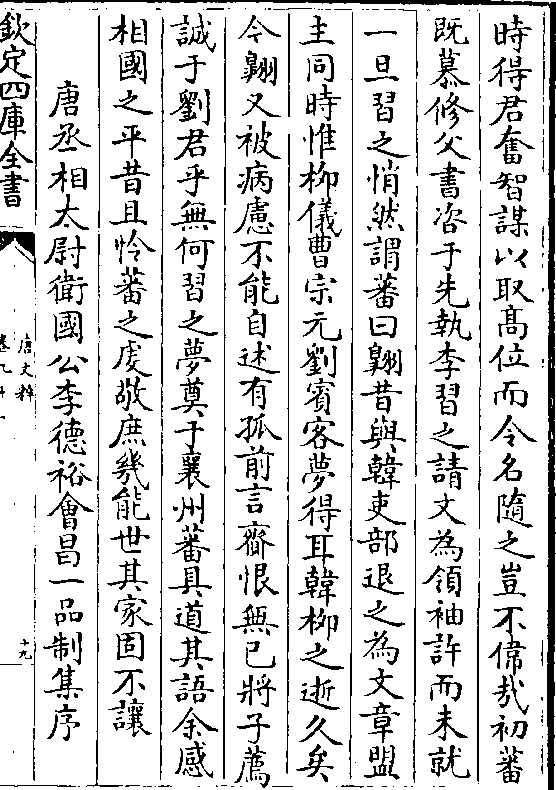 時得君奮智謀以取髙位而令名隨之豈不偉哉初蕃
既慕修父書咨于先執李習之請文為領袖許而未就
一旦習之悄然謂蕃曰翺昔與韓吏部退之為文章盟
主同時惟柳儀曹宗元劉賓客夢得耳韓柳之逝久矣
今翺又被病慮不能自述有孤前言齎恨無已將子薦
誠于劉君乎無何習之夢奠于襄州蕃具道其語余感
相國之平昔且怜蕃之虔敬庶幾能世其家固不讓
唐丞相太尉衛國公李德裕會昌一品制集序
欽定四庫全書
唐文粹
十九